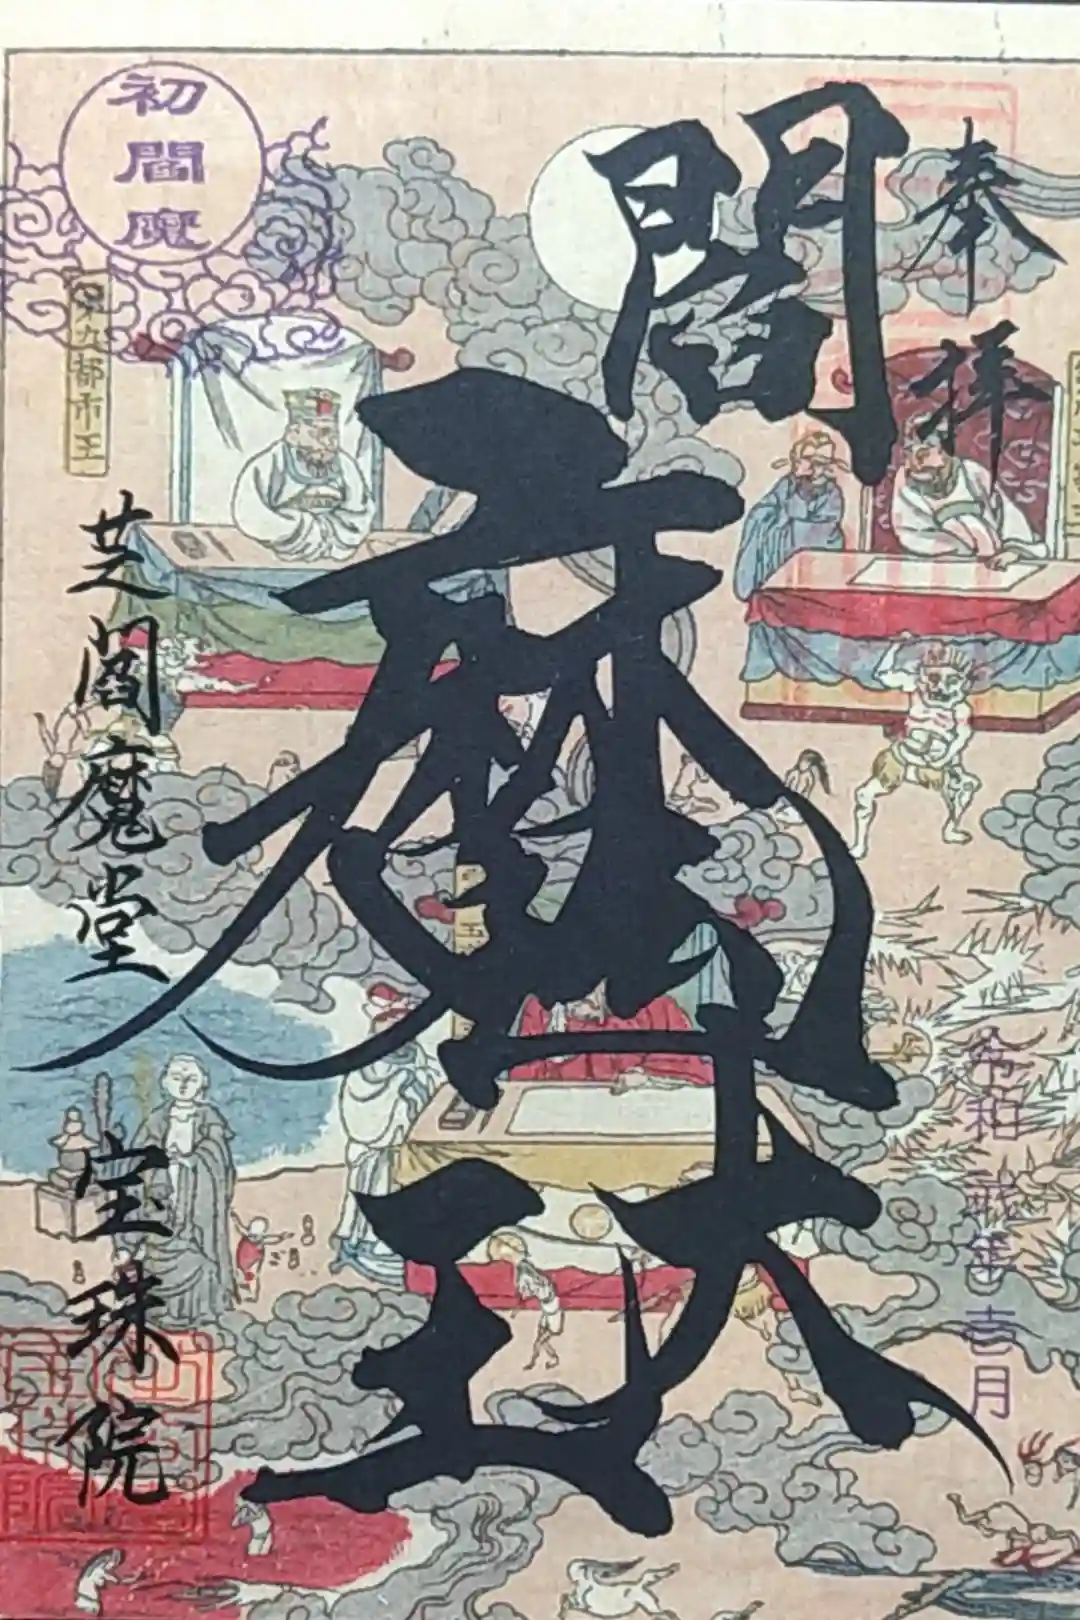 奉拝
閻魔大王
令和弐年壱月
初閻魔
第九都市王
芝閻魔堂 宝珠院